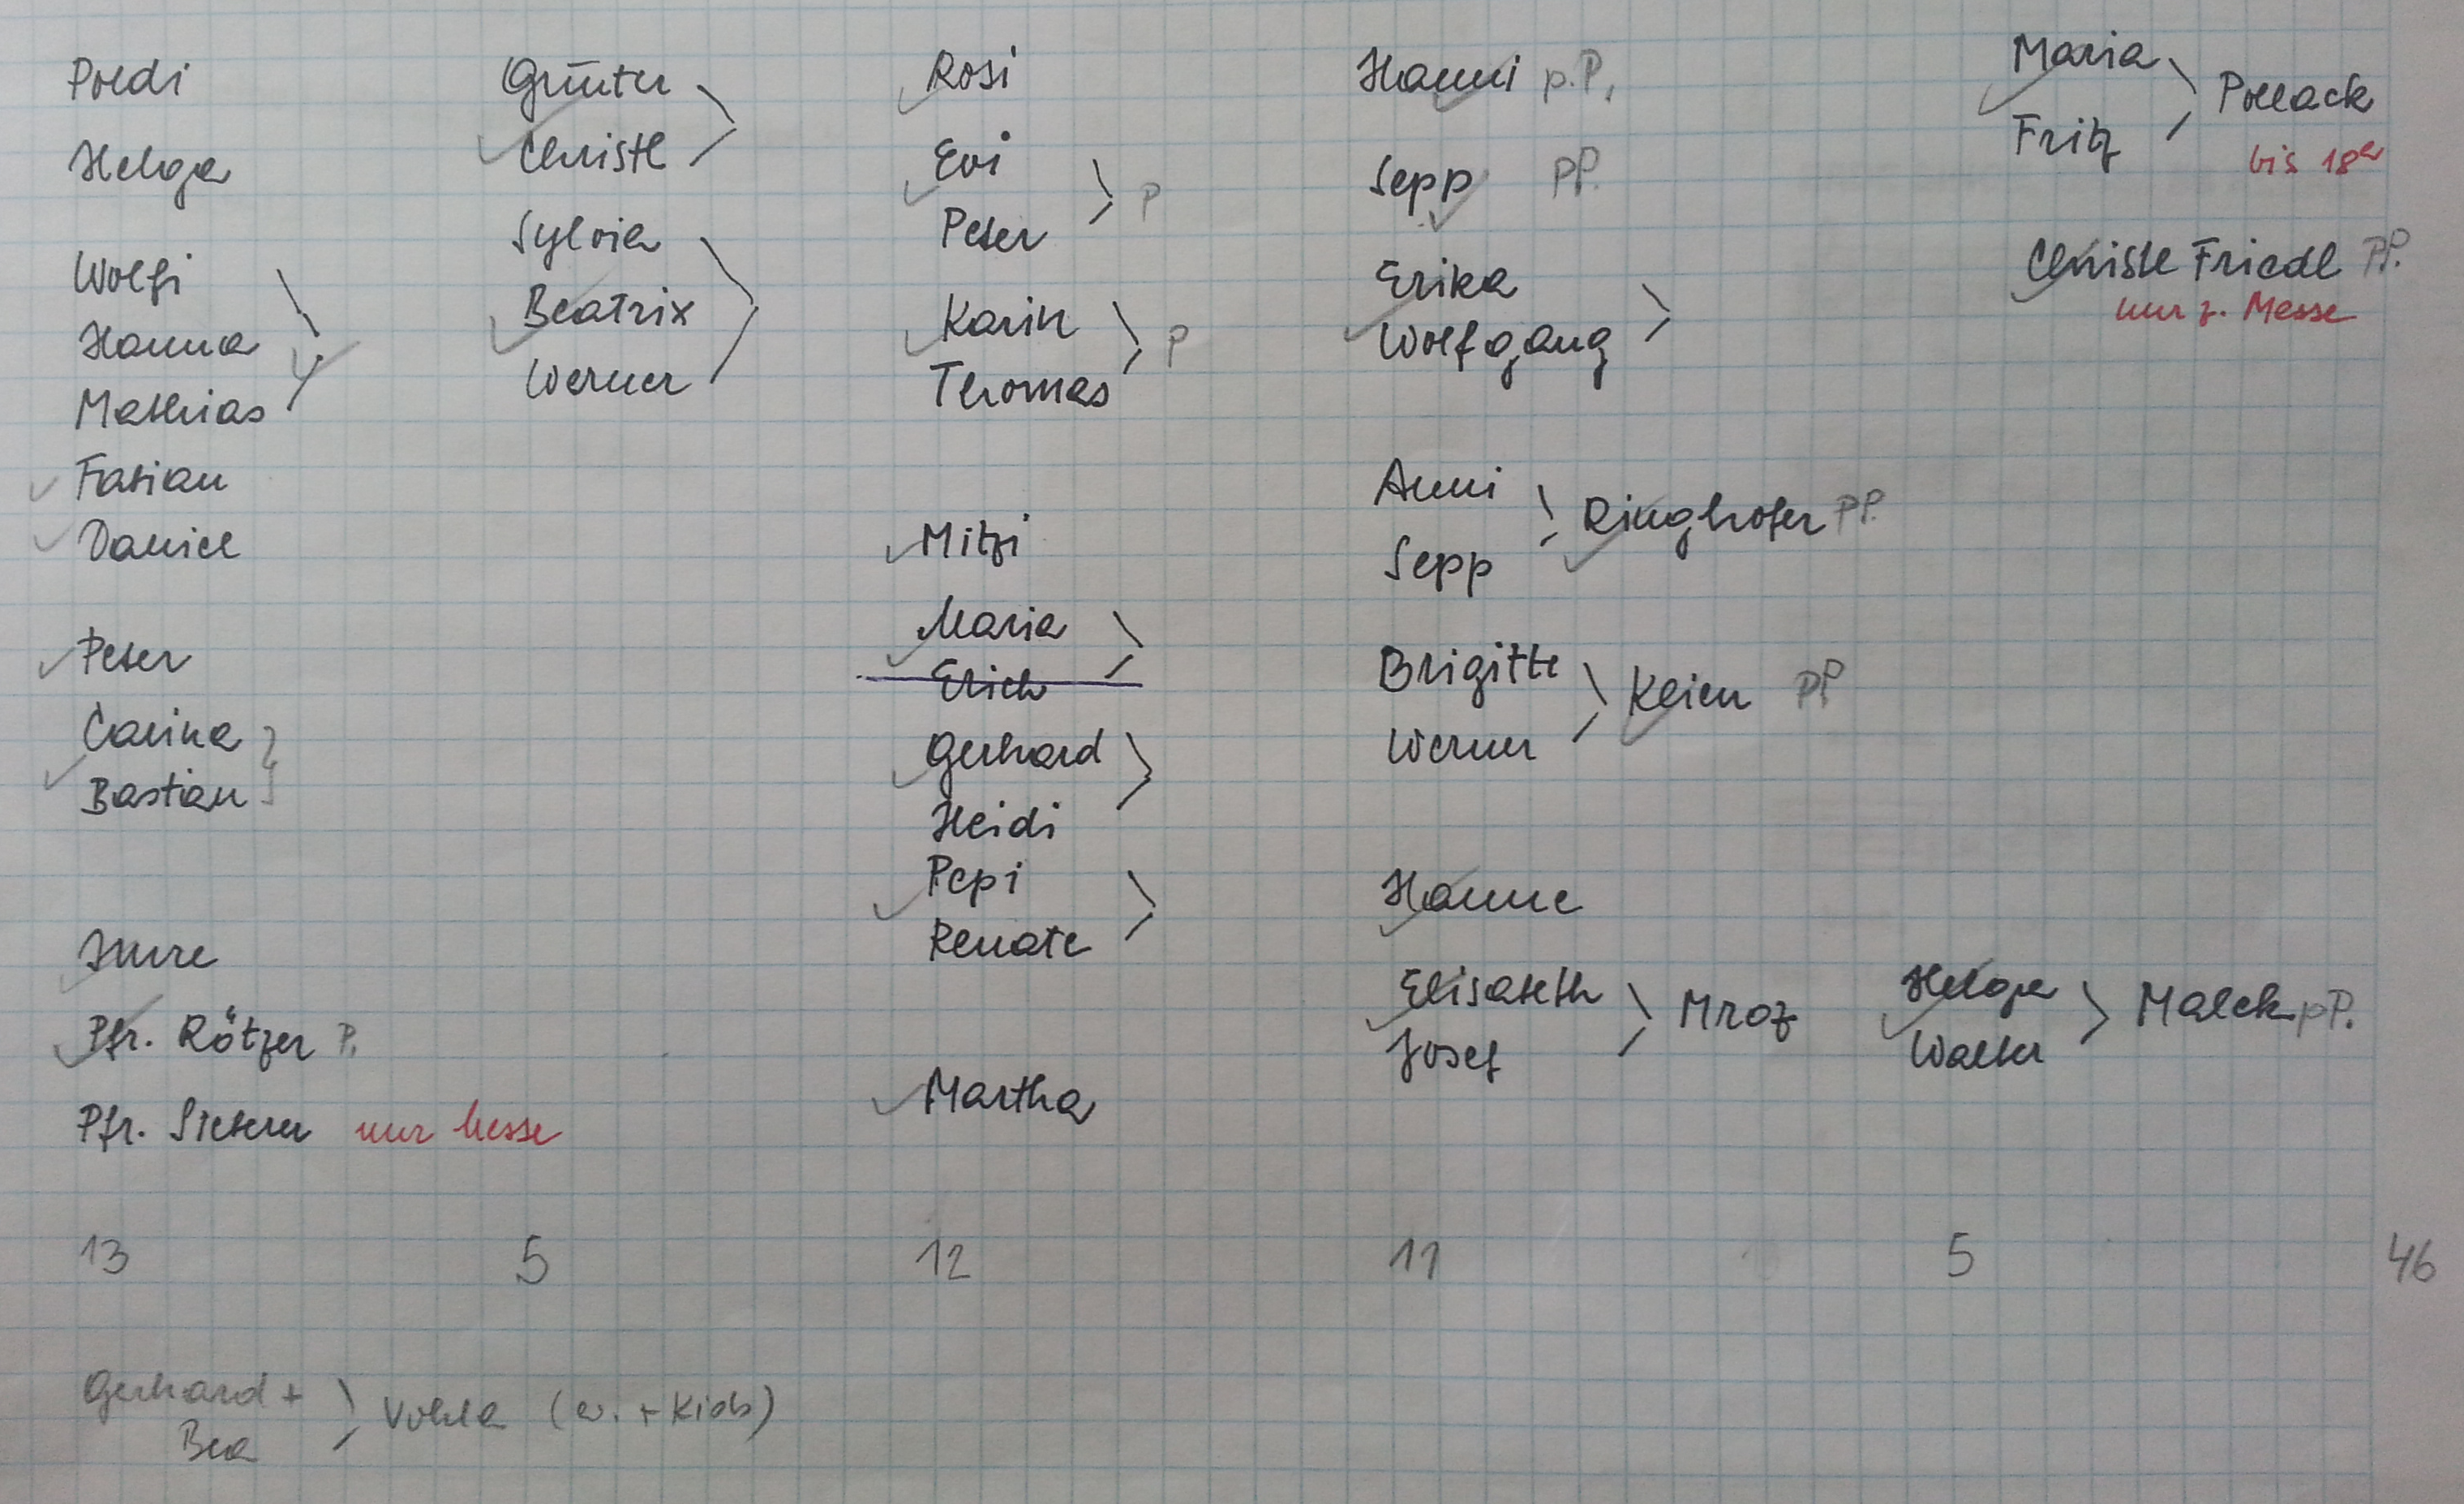 Poldi
Helga
Wolfi
Hanna
Mathias
Fabian
Daniel
Peter
Carina
Bastian
Imre
Pfr. Rötzer P.
Pfr. nur Messe
13
Günter
Christl
Sylvia
Beatrix
Werner
5
Rosi
Evi
Peter P
Karin
Thomas P
Mitzi
Maria
Erich
Gerhard
Heidi
Pepi
Renate
Martha
12
Hanni p.P.
Sepp pP.
Erika
Wolfgang
Anni
Sepp
Ringhofer pP.
Brigitte
Werner
Klein pP
Hanne
Elisabeth
Josef
Mroz
11
Maria
Fritz
Pollack
bis 18h
Christl Friedl pP.
nur z. Messe
Helga
Walter
Malek pP.
5
46
Gerhard +
Bea
(ev. + Kids)